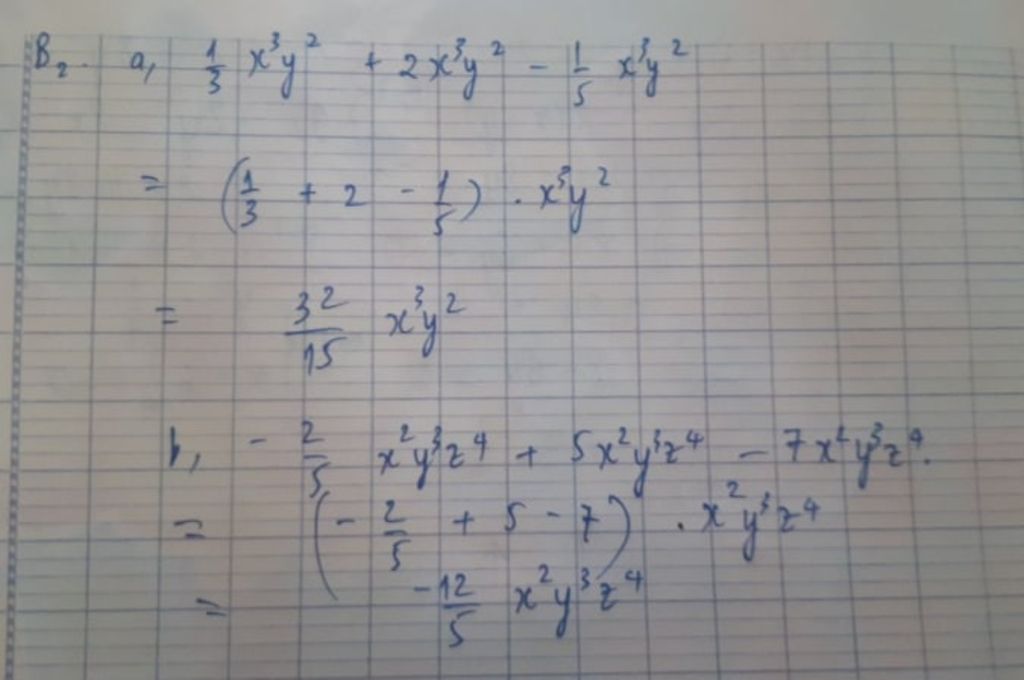 B₂. a, 1/3 x³y² + 2x³y² - 1/5 x³y²
= (1/3 + 2 - 1/5) . x³y²
= 32/15 x³y²
b, - 2/5 x²y³z⁴ + 5x²y³z⁴ - 7x²y³z⁴.
= (- 2/5 + 5 - 7) . x²y³z⁴
= -12/5 x²y³z⁴